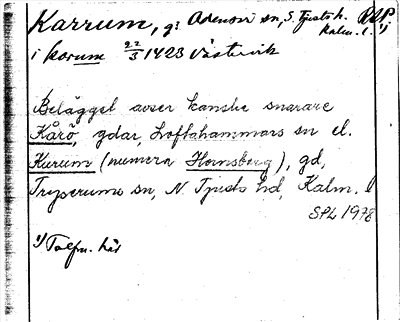 Karrum, g: Odensvi sn, S. Tjusts h. Kalm. l.
i korum 22/3 1423 Västervik
Belägget avser kanske snarare
Kårö, gdar, Loftahammars sn el.
Kurum (numera Hornsberg), gd,
Tryserums sn, N Tjusts hd, Kalm. l
SPL 1978
1) Tolfm. här